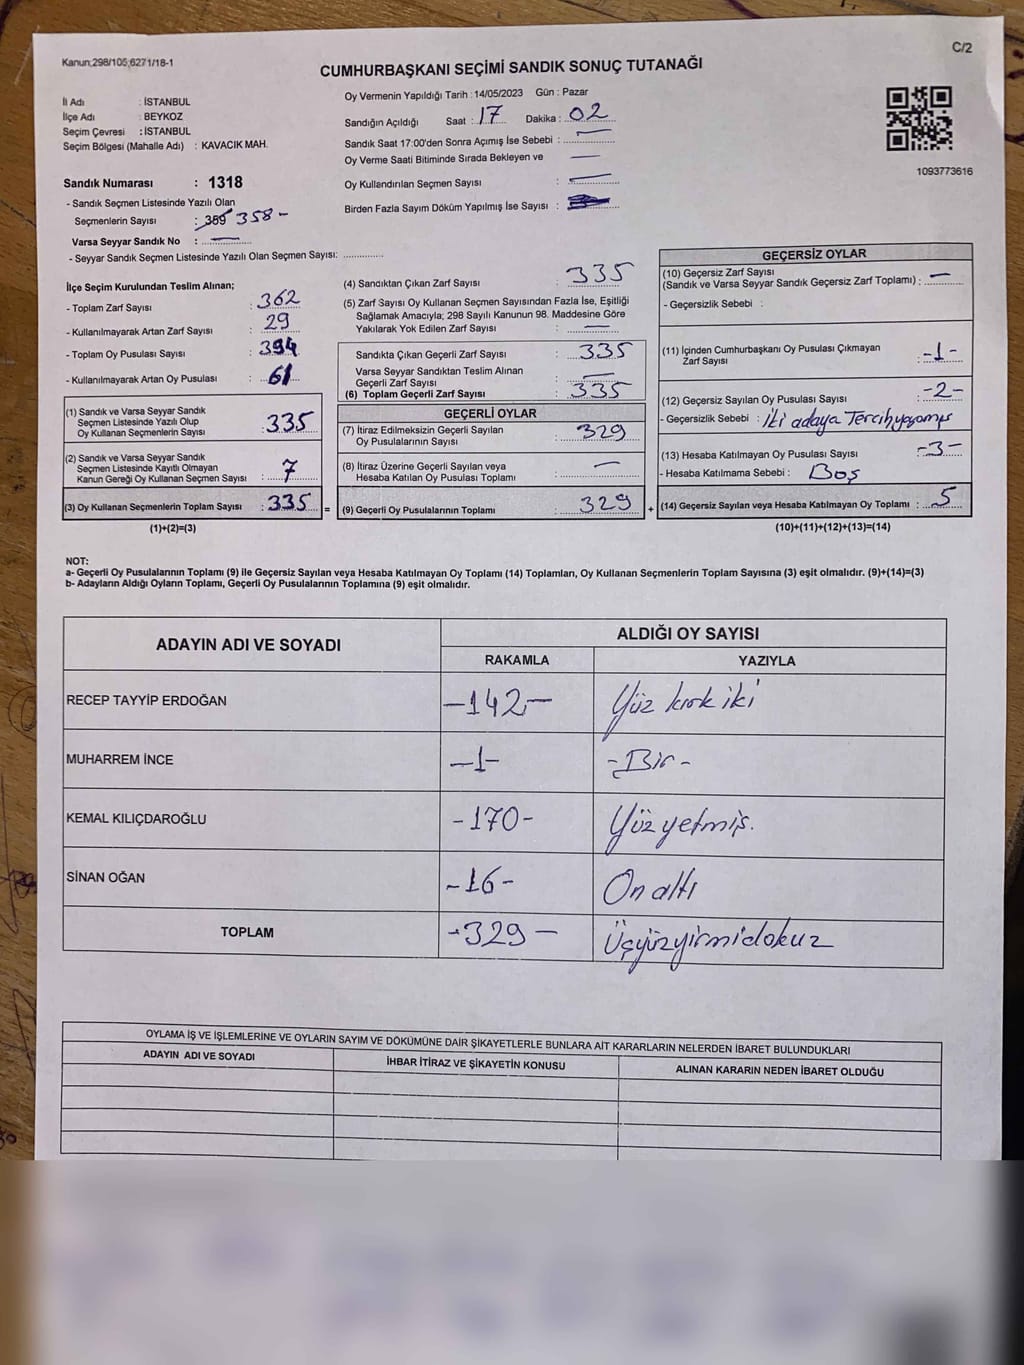 Kanun;298/105;6271/18-1
C/2
CUMHURBAŞKANI SEÇİMİ SANDIK SONUÇ TUTANAĞI
İl Adı : İSTANBUL
İlçe Adı : BEYKOZ
Seçim Çevresi : İSTANBUL
Seçim Bölgesi (Mahalle Adı) : KAVACIK MAH.
Oy Vermenin Yapıldığı Tarih : 14/05/2023 Gün : Pazar
Sandığın Açıldığı Saat : 17 Dakika : 02
Sandık Saat 17:00'den Sonra Açılmış İse Sebebi : —
Oy Verme Saati Bitiminde Sırada Bekleyen ve —
Oy Kullandırılan Seçmen Sayısı : —
Birden Fazla Sayım Döküm Yapılmış İse Sayısı :
1093773616
Sandık Numarası : 1318
- Sandık Seçmen Listesinde Yazılı Olan
Seçmenlerin Sayısı : 359 358 -
Varsa Seyyar Sandık No : —
- Seyyar Sandık Seçmen Listesinde Yazılı Olan Seçmen Sayısı: ..............
İlçe Seçim Kurulundan Teslim Alınan;
- Toplam Zarf Sayısı : 362
- Kullanılmayarak Artan Zarf Sayısı : 29
- Toplam Oy Pusulası Sayısı : 394
- Kullanılmayarak Artan Oy Pusulası : 61
(1) Sandık ve Varsa Seyyar Sandık
Seçmen Listesinde Yazılı Olup
Oy Kullanan Seçmenlerin Sayısı : 335
(2) Sandık ve Varsa Seyyar Sandık
Seçmen Listesinde Kayıtlı Olmayan
Kanun Gereği Oy Kullanan Seçmen Sayısı : 7
(3) Oy Kullanan Seçmenlerin Toplam Sayısı : 335 =
(1)+(2)=(3)
(4) Sandıktan Çıkan Zarf Sayısı : 335
(5) Zarf Sayısı Oy Kullanan Seçmen Sayısından Fazla İse, Eşitliği
Sağlamak Amacıyla; 298 Sayılı Kanunun 98. Maddesine Göre
Yakılarak Yok Edilen Zarf Sayısı : —
Sandıkta Çıkan Geçerli Zarf Sayısı : 335
Varsa Seyyar Sandıktan Teslim Alınan
Geçerli Zarf Sayısı : —
(6) Toplam Geçerli Zarf Sayısı : 335
GEÇERLİ OYLAR
(7) İtiraz Edilmeksizin Geçerli Sayılan
Oy Pusulalarının Sayısı : 329
(8) İtiraz Üzerine Geçerli Sayılan veya
Hesaba Katılan Oy Pusulası Toplamı : —
(9) Geçerli Oy Pusulalarının Toplamı : 329 +
GEÇERSİZ OYLAR
(10) Geçersiz Zarf Sayısı
(Sandık ve Varsa Seyyar Sandık Geçersiz Zarf Toplamı) : —
- Geçersizlik Sebebi :
(11) İçinden Cumhurbaşkanı Oy Pusulası Çıkmayan
Zarf Sayısı : -1-
(12) Geçersiz Sayılan Oy Pusulası Sayısı : -2-
- Geçersizlik Sebebi : iki adaya Tercih
(13) Hesaba Katılmayan Oy Pusulası Sayısı : -3-
- Hesaba Katılmama Sebebi : Boş
(14) Geçersiz Sayılan veya Hesaba Katılmayan Oy Toplamı : 5
(10)+(11)+(12)+(13)=(14)
NOT:
a- Geçerli Oy Pusulalarının Toplamı (9) ile Geçersiz Sayılan veya Hesaba Katılmayan Oy Toplamı (14) Toplamları, Oy Kullanan Seçmenlerin Toplam Sayısına (3) eşit olmalıdır. (9)+(14)=(3)
b- Adayların Aldığı Oyların Toplamı, Geçerli Oy Pusulalarının Toplamına (9) eşit olmalıdır.
ADAYIN ADI VE SOYADI
ALDIĞI OY SAYISI
RAKAMLA YAZIYLA
RECEP TAYYİP ERDOĞAN -142- Yüz kırk iki
MUHARREM İNCE -1- -Bir-
KEMAL KILIÇDAROĞLU -170- Yüz yetmiş.
SİNAN OĞAN -16- On altı
TOPLAM -329- Üçyüzyirmidokuz
OYLAMA İŞ VE İŞLEMLERİNE VE OYLARIN SAYIM VE DÖKÜMÜNE DAİR ŞİKAYETLERLE BUNLARA AİT KARARLARIN NELERDEN İBARET BULUNDUKLARI
ADAYIN ADI VE SOYADI İHBAR İTİRAZ VE ŞİKAYETİN KONUSU ALINAN KARARIN NEDEN İBARET OLDUĞU